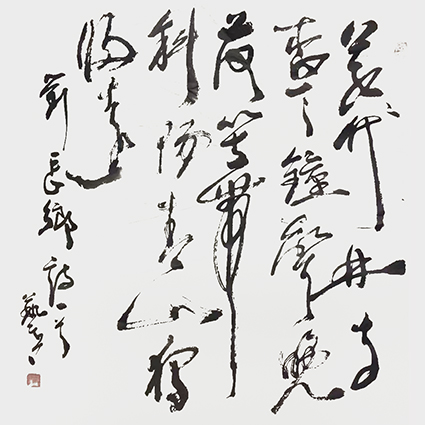 蒼々竹林寺
杳々鐘聲晚
荷笠帶
斜陽青山獨
歸遠
劉長卿詩一首